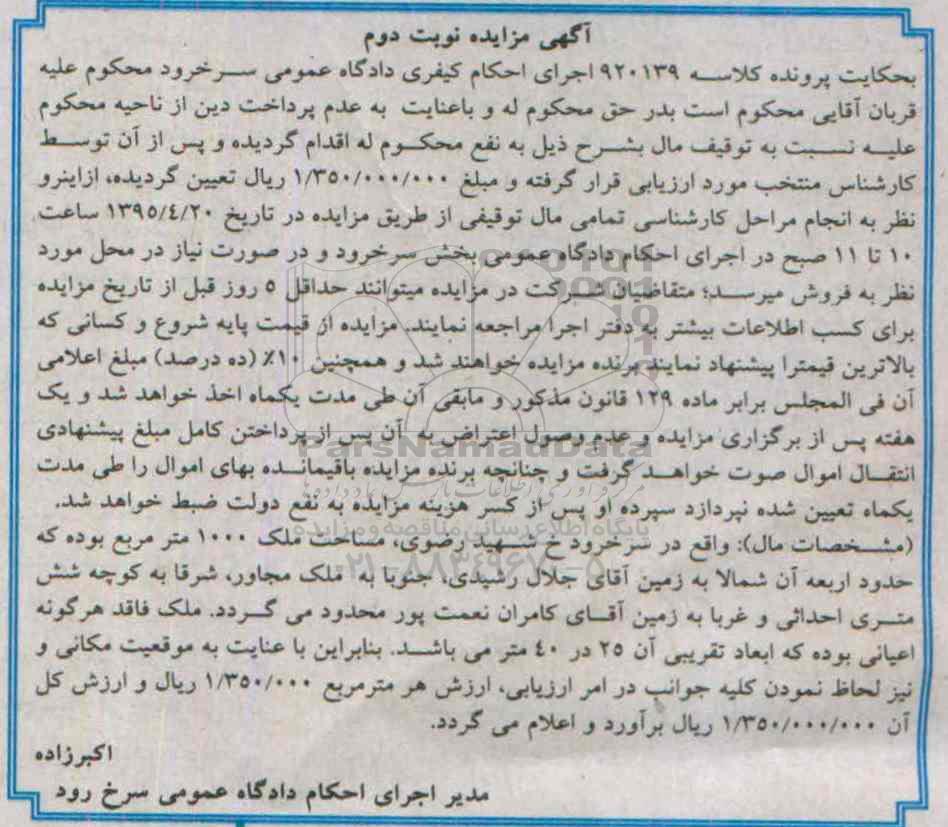 آگهی مزایده نوبت دوم
بحکایت پرونده کلاسه ۹۲۰۱۳۹ اجرای احکام کیفری دادگاه عمومی سرخرود محکوم علیه
قربان آقایی محکوم است بدر حق محکوم له و باعنایت به عدم پرداخت دین از ناحیه محکوم
علیه نسبت به توقیف مال بشرح ذیل به نفع محکوم له اقدام گردیده و پس از آن توسط
کارشناس منتخب مورد ارزیابی قرار گرفته و مبلغ ۱/۳۵۰/۰۰۰/۰۰۰ ریال تعیین گردیده، ازاینرو
نظر به انجام مراحل کارشناسی تمامی مال توقیفی از طریق مزایده در تاریخ ۱۳۹۵/٤/۲۰ ساعت
۱۰ تا ۱۱ صبح در اجرای احکام دادگاه عمومی بخش سرخرود و در صورت نیاز در محل مورد
نظر به فروش میرسد؛ متقاضیان شرکت در مزایده میتوانند حداقل ۵ روز قبل از تاریخ مزایده
برای کسب اطلاعات بیشتر به دفتر اجرا مراجعه نمایند. مزایده از قیمت پایه شروع و کسانی که
بالاترین قیمترا پیشنهاد نمایند برنده مزایده خواهند شد و همچنین ۱۰٪ (ده درصد) مبلغ اعلامی
آن فی المجلس برابر ماده ۱۲۹ قانون مذکور و مابقی آن طی مدت یکماه اخذ خواهد شد و یک
هفته پس از برگزاری مزایده و عدم وصول اعتراض به آن پس از پرداختن کامل مبلغ پیشنهادی
انتقال اموال صوت خواهد گرفت و چنانچه برنده مزایده باقیمانده بهای اموال را طی مدت
یکماه تعیین شده نپردازد سپرده او پس از کسر هزینه مزایده به نفع دولت ضبط خواهد شد.
(مشخصات مال): واقع در سرخرود خ شهید رضوی، مساحت ملک ۱۰۰۰ متر مربع بوده که
حدود اربعه آن شمالا به زمین آقای جلال رشیدی، جنوبا به ملک مجاور، شرقا به کوچه شش
متری احداثی و غربا به زمین آقای کامران نعمت پور محدود می گردد. ملک فاقد هرگونه
اعیانی بوده که ابعاد تقریبی آن ۲۵ در ٤۰ متر می باشد. بنابراین با عنایت به موقعیت مکانی و
نیز لحاظ نمودن کلیه جوانب در امر ارزیابی، ارزش هر مترمربع ۱/۳۵۰/۰۰۰ ریال و ارزش کل
آن ۱/۳۵۰/۰۰۰/۰۰۰ ریال برآورد و اعلام می گردد.
اکبرزاده
مدیر اجرای احکام دادگاه عمومی سرخ رود
ParsNamadData
پایگاه اطلاع رسانی مناقصه و مزایده
۰۲۱-۸۸۳٤۹۶۷۰-۵